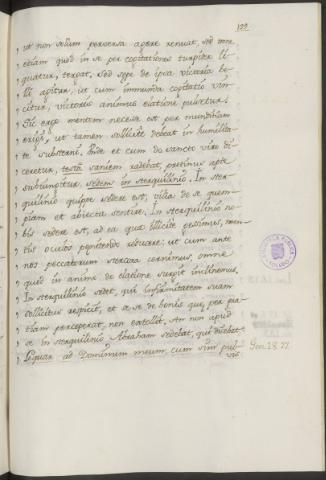 122
, ut non solum perversa agere renuat, sed omne
, etiam quod in se per cogitationes turpiter li-
, quatur, tergat, sed sæpe de ipsa victoria be-
, lli agitur, ut cum immunda cogitatio vin-
, citur, victoris animus elatione pulsetur.
, Sic ergo mentem necesse est per munditiam
, erigi, ut tamen sollicite debeat in humilita-
, te substerni. Unde et cum de sancto viro di-
, ceretur, testa saniem radebat, protinus apte
, subiungitur, sedens in sterquilinio. In ster-
, quilinio quippe sedere est, vilia de se quem-
, piam et abiecta sentire. In sterquilinio no-
, bis sedere est, ad ea quæ illicite gessimus, men-
, tis oculos pœnitendo reducere: ut cum ante
, nos peccatorum stercora cernimus, omne
, quod in animo de elatione surgit inclinemus.
, In sterquilinio sedet, qui infirmitatem suam
, sollicitus respicit, et se se de bonis quæ, per gra-
, tiam perceperat, non extollit. An non apud
, se in sterquilinio Abraham sedebat, qui dicebat:
, Loquar ad Dominum meum, cum sim pul-
Gen. 18. 27.
vis